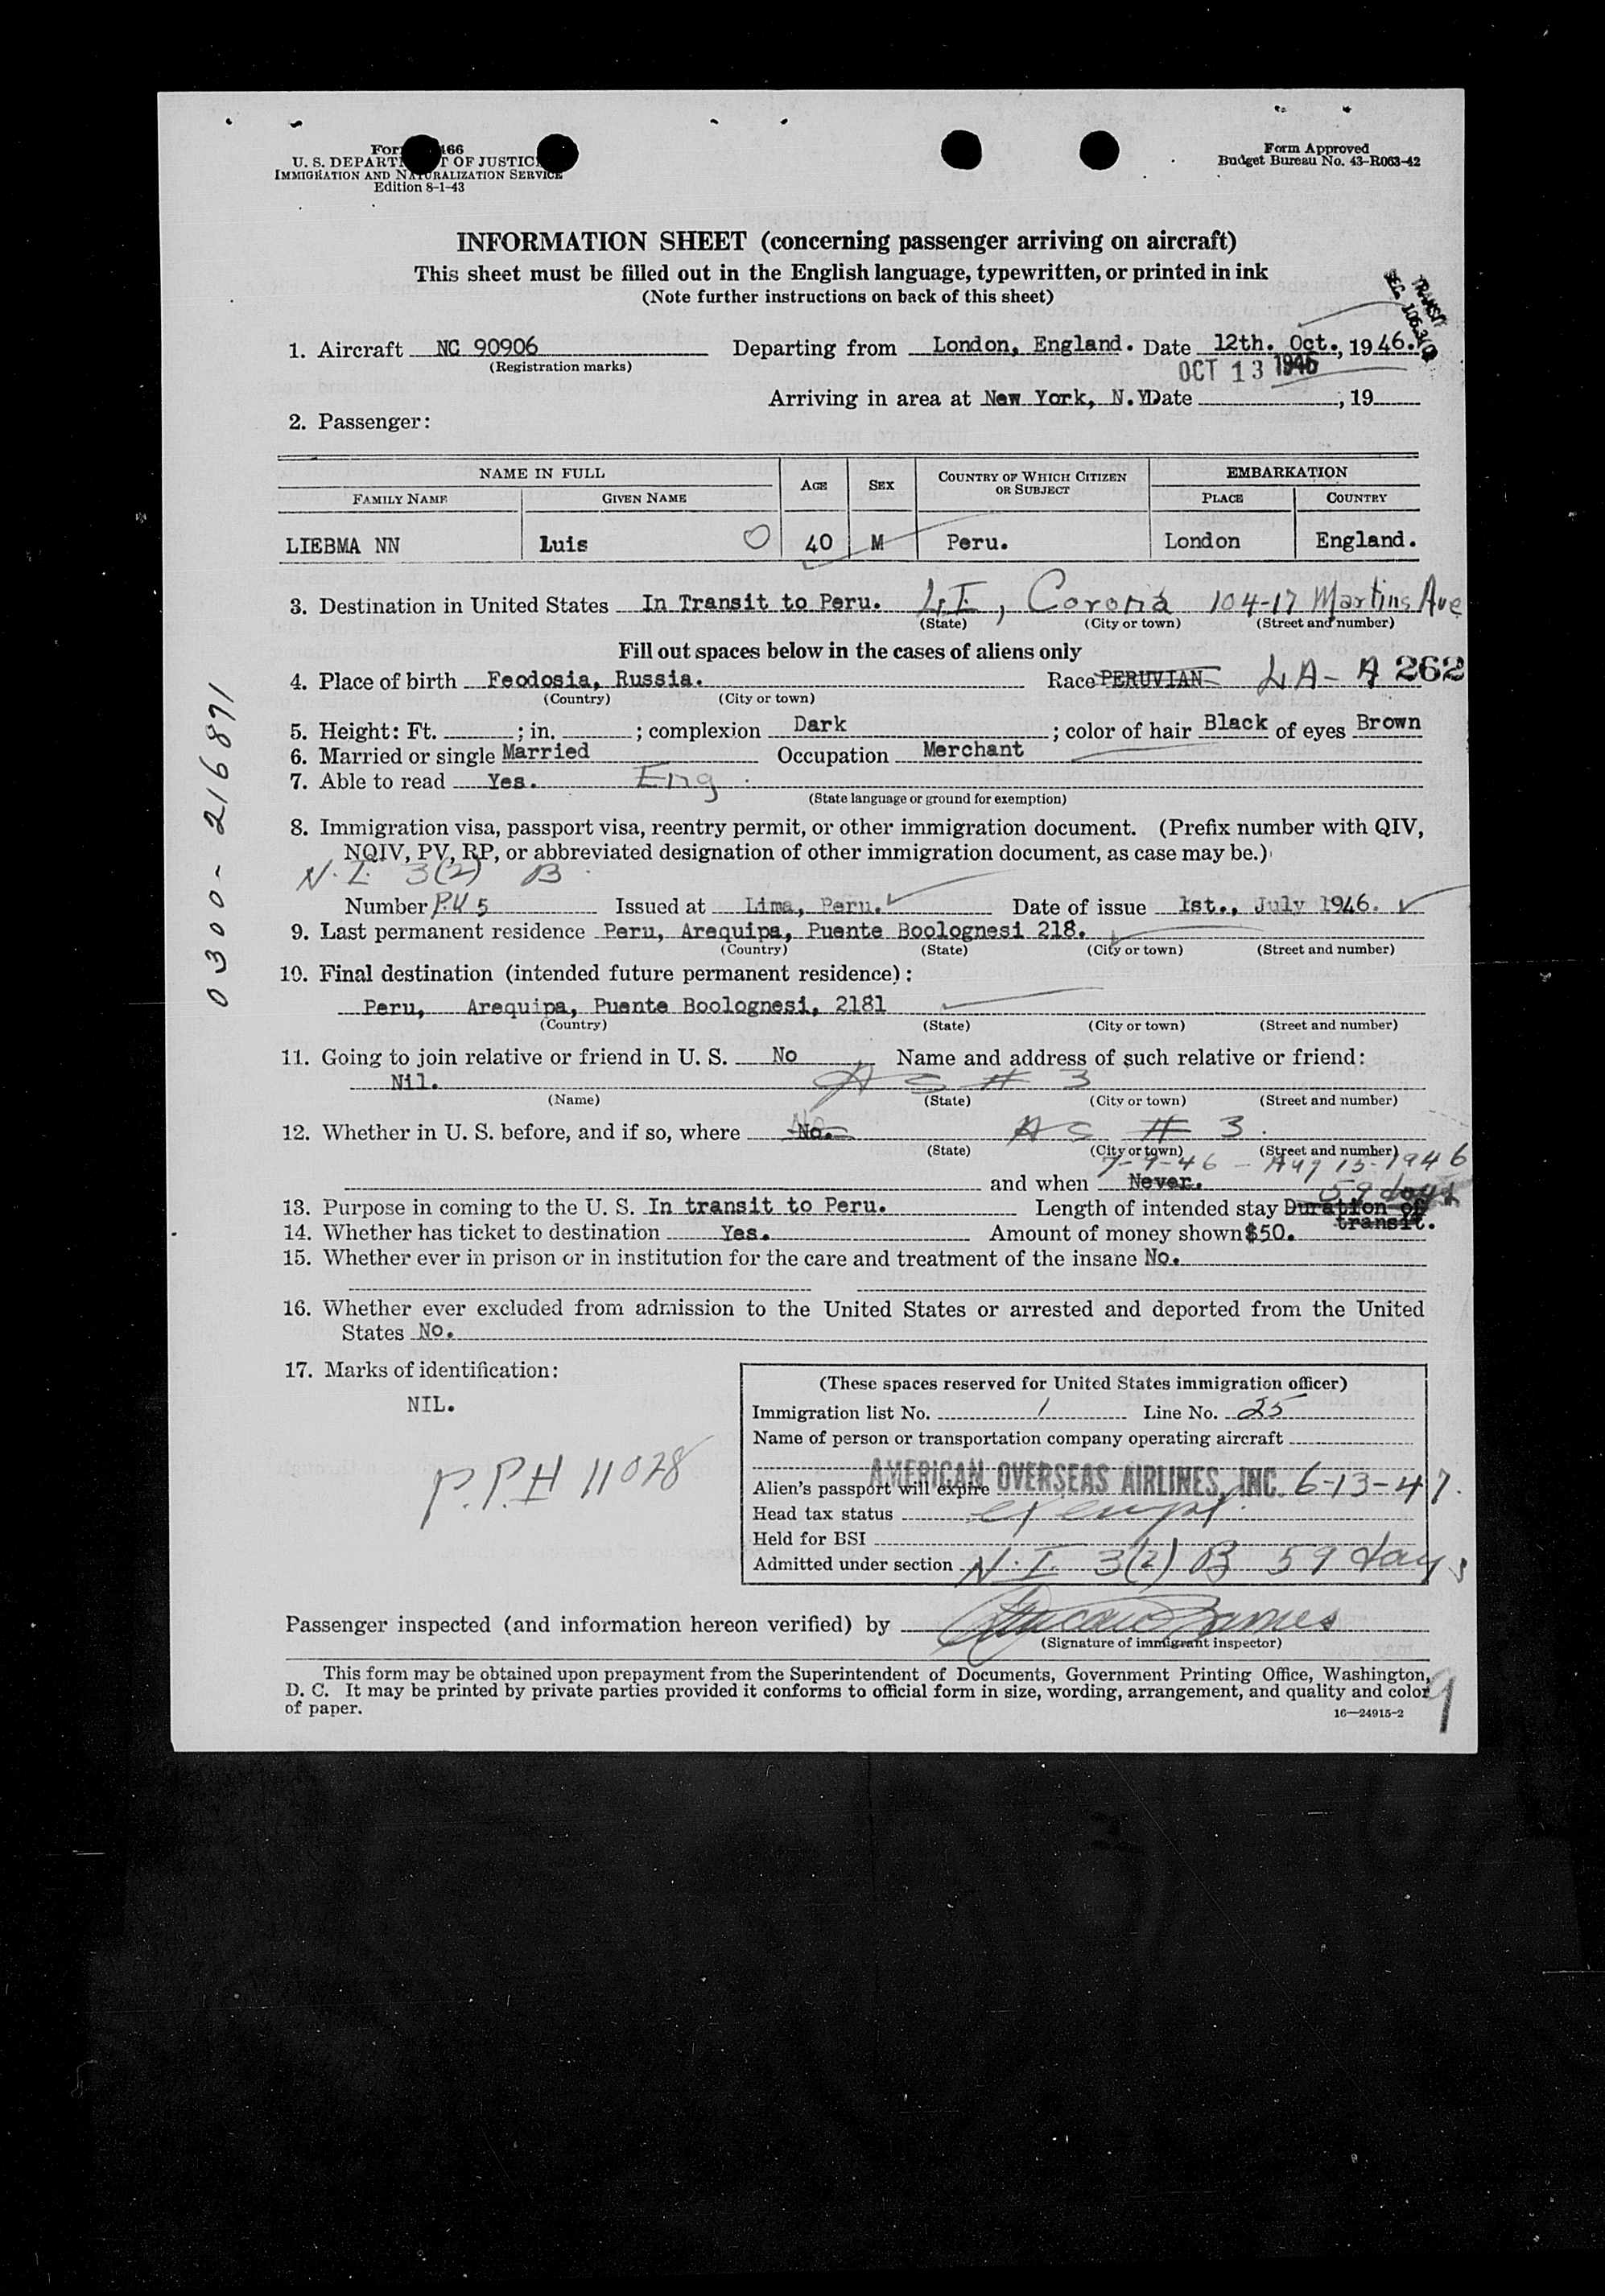 Form 466
U. S. DEPARTMENT OF JUSTICE
IMMIGRATION AND NATURALIZATION SERVICE
Edition 8-1-43
Form Approved
Budget Bureau No. 43-R063-42
INFORMATION SHEET (concerning passenger arriving on aircraft)
This sheet must be filled out in the English language, typewritten, or printed in ink
(Note further instructions on back of this sheet)
TRANSIT
1. Aircraft NC 90906 Departing from London, England. Date 12th. Oct., 1946.
(Registration marks)
OCT 13 1946
Arriving in area at New York, N.Y Date , 19
2. Passenger:
NAME IN FULL AGE SEX COUNTRY OF WHICH CITIZEN OR SUBJECT EMBARKATION
FAMILY NAME GIVEN NAME PLACE COUNTRY
LIEBMA NN Luis 40 M Peru. London England.
3. Destination in United States In Transit to Peru. L.I, Corona 104-17 Martins Ave
(State) (City or town) (Street and number)
Fill out spaces below in the cases of aliens only
4. Place of birth Feodosia, Russia. Race PERUVIAN LA- A 262
(Country) (City or town)
5. Height: Ft. ; in. ; complexion Dark ; color of hair Black of eyes Brown
6. Married or single Married Occupation Merchant
7. Able to read Yes. Eng
(State language or ground for exemption)
8. Immigration visa, passport visa, reentry permit, or other immigration document. (Prefix number with QIV,
NQIV, PV, RP, or abbreviated designation of other immigration document, as case may be.)
N.I. 3(2) B
Number P.V 5 Issued at Lima, Peru. Date of issue 1st., July 1946.
9. Last permanent residence Peru, Arequipa, Puente Boolognesi 218.
(Country) (State) (City or town) (Street and number)
10. Final destination (intended future permanent residence):
Peru, Arequipa, Puente Boolognesi, 2181
(Country) (State) (City or town) (Street and number)
11. Going to join relative or friend in U. S. No Name and address of such relative or friend:
Nil. AS # 3
(Name) (State) (City or town) (Street and number)
12. Whether in U. S. before, and if so, where No. AS # 3
(State) (City or town) (Street and number)
7-9-46 - Aug 15-1946
and when Never.
59 days
13. Purpose in coming to the U. S. In transit to Peru. Length of intended stay Duration of
transit.
14. Whether has ticket to destination Yes. Amount of money shown $50.
15. Whether ever in prison or in institution for the care and treatment of the insane No.
16. Whether ever excluded from admission to the United States or arrested and deported from the United
States No.
17. Marks of identification:
NIL.
P.P.# 11028
(These spaces reserved for United States immigration officer)
Immigration list No. 1 Line No. 25
Name of person or transportation company operating aircraft
AMERICAN OVERSEAS AIRLINES, INC.
Alien's passport will expire 6-13-47.
Head tax status exempt
Held for BSI
Admitted under section N.I. 3(2) B 59 days
Passenger inspected (and information hereon verified) by
(Signature of immigrant inspector)
This form may be obtained upon prepayment from the Superintendent of Documents, Government Printing Office, Washington,
D. C. It may be printed by private parties provided it conforms to official form in size, wording, arrangement, and quality and color
of paper.
16—24915-2
9
0300-216891